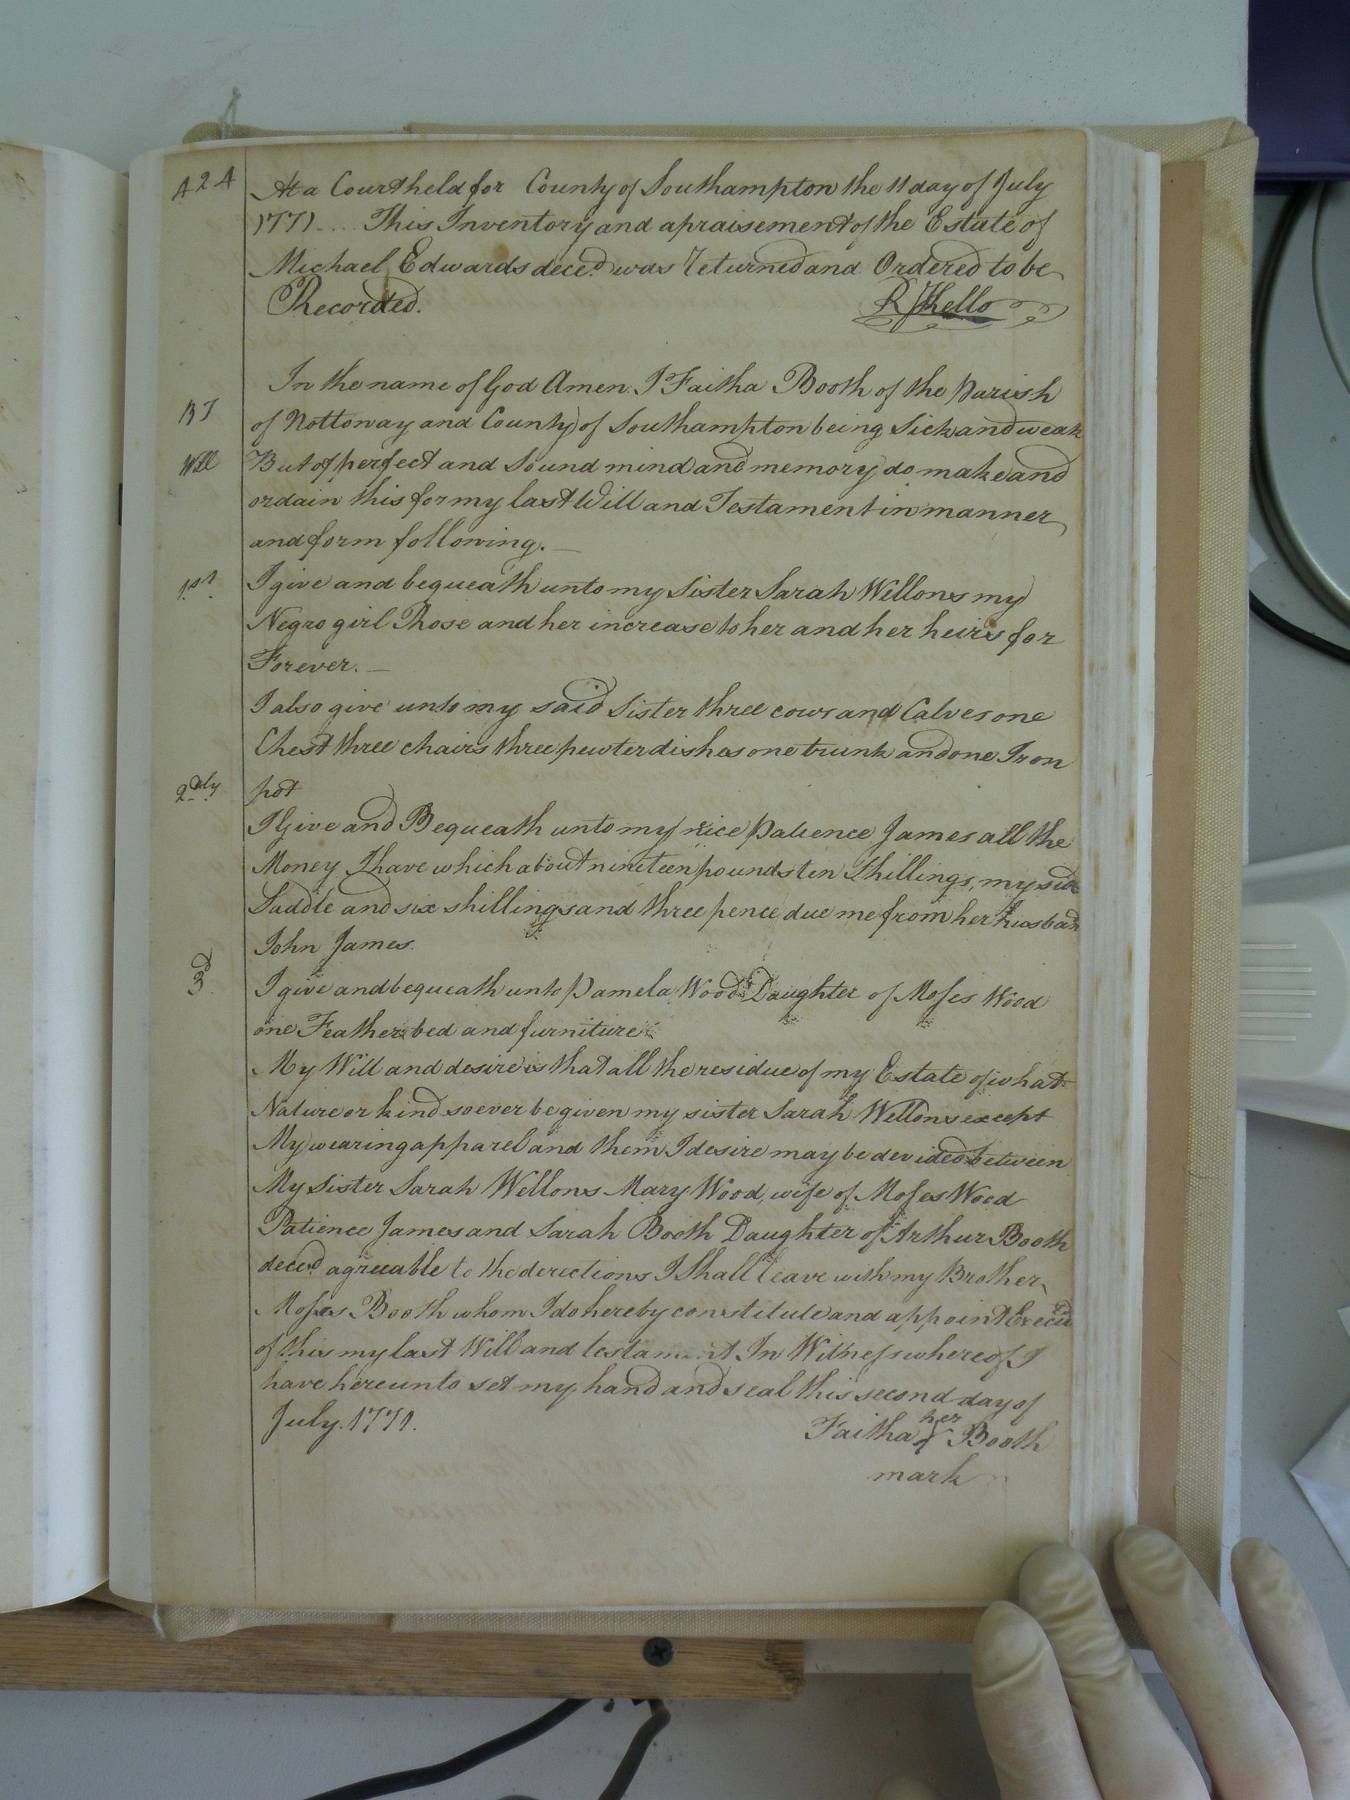 424
At a Court held for County of Southampton the 11 day of July
1771.... This Inventory and apraisement of the Estate of
Michael Edwards deced. was returned and Ordered to be
Recorded.
R Kello
In the name of God Amen I Faitha Booth of the Parish
BT
of Nottoway and County of Southampton being Sick and weak
Will
But of perfect and Sound mind and memory do make and
ordain this for my last Will and Testament in manner
and form following. —
1st.
I give and bequeath unto my Sister Sarah Wellons my
Negro girl Rose and her increase to her and her heirs for
Forever. —
I also give unto my said Sister three cows and Calves one
Chest three chairs three pewter dishes one trunk and one Iron
2dly
pot
I Give and Bequeath unto my nice Patience James all the
Money I have which about nineteen pounds ten Shillings, my side
Saddle and six shillings and three pence due me from her husban
John James.
3d.
I give and bequeath unto Pamela Wood Daughter of Moses Wood
one Feather bed and furniture
My Will and desire is that all the residue of my Estate of what
Nature or kind soever be given my sister Sarah Wellons except
My wearing apparel and them I desire may be devided between
My Sister Sarah Wellons Mary Wood, wife of Moses Wood
Patience James and Sarah Booth Daughter of Arthur Booth
decd. agreeable to the derections I Shall leave with my Brother
Moses Booth whom I do hereby constitute and appoint
of this my last Will and testament In Witness whereof I
have hereunto set my hand and seal this second day of
July. 1771.
her
Faitha Booth
mark